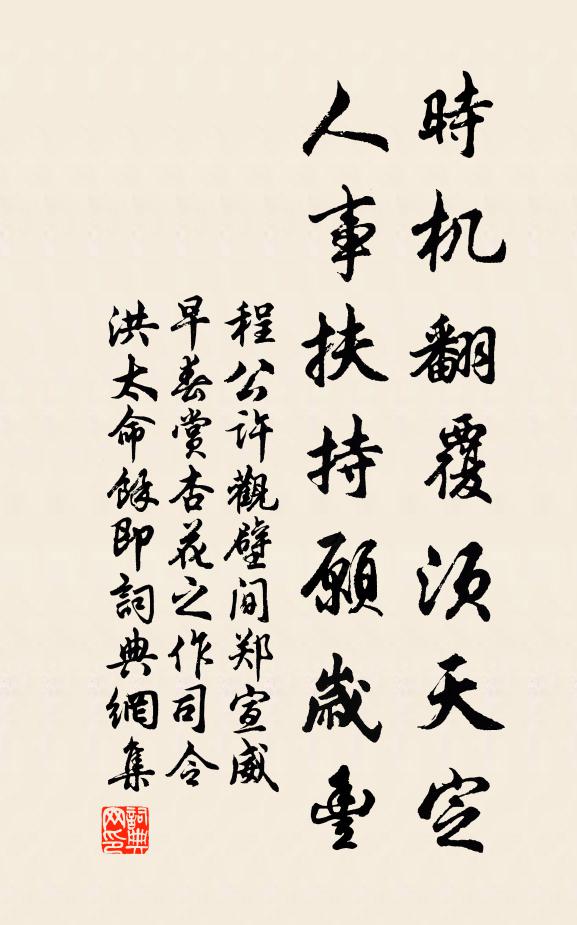 時机翻覆须天定
人事扶持願歲豐
程公許觀壁间郑宣威
早春賞杏花之作司令
洪太命馀即詞典網集
詞典网印